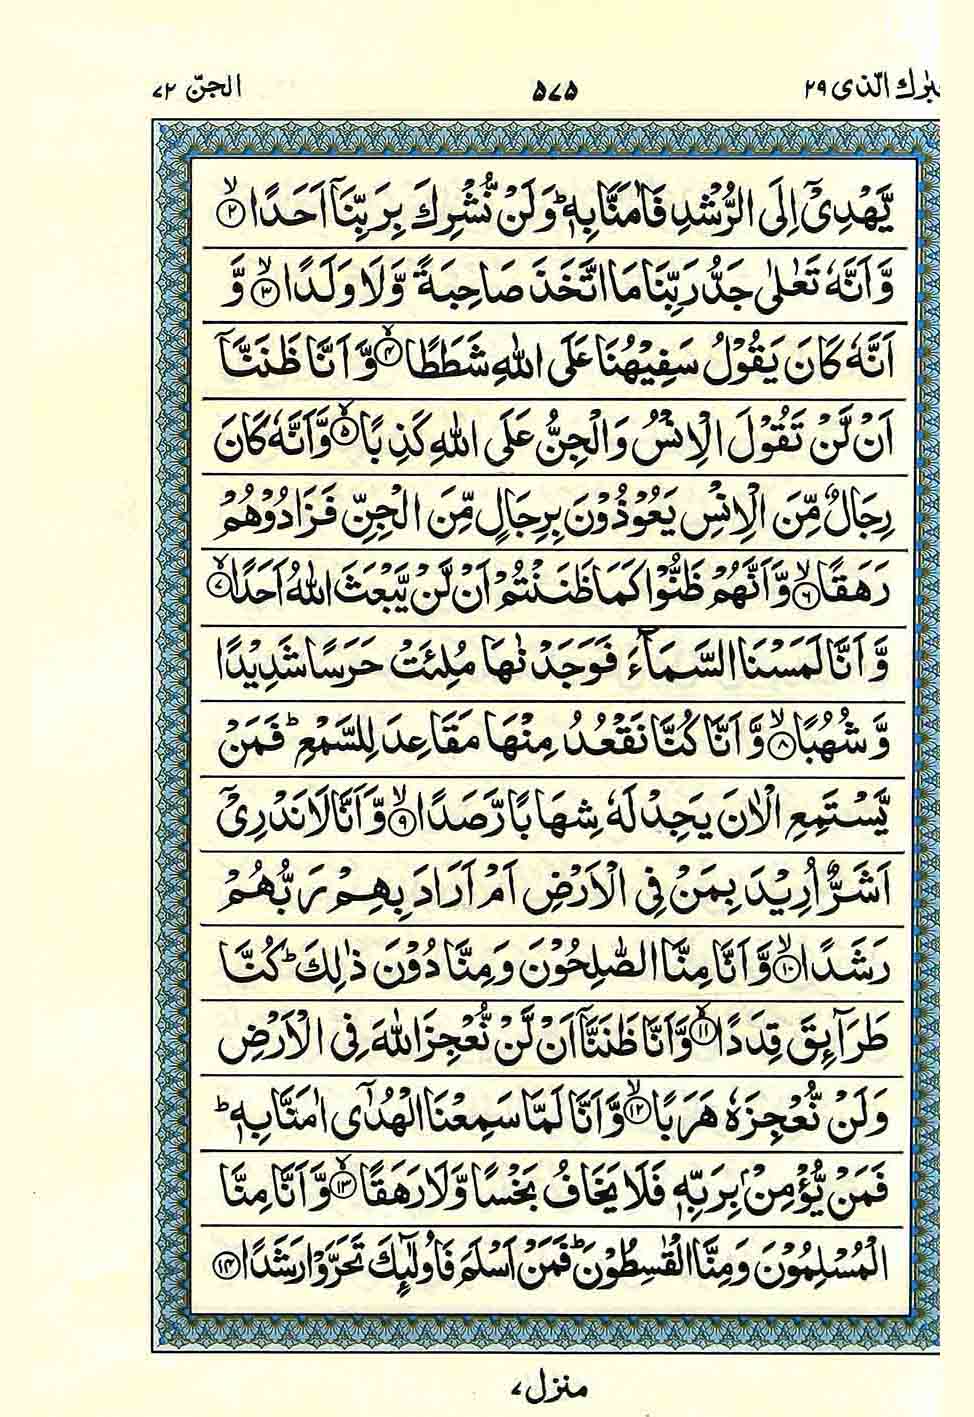 تبٰرك الّذى ٢٩
۵۷۵
الجنّ ۷۲
يَّهْدِىْۤ اِلَى الرُّشْدِ فَاٰمَنَّا بِهٖ ؕ وَلَنْ نُّشْرِكَ بِرَبِّنَاۤ اَحَدًا ۙ‏﴿۲﴾
وَّاَنَّهٗ تَعٰلٰى جَدُّ رَبِّنَا مَا اتَّخَذَ صَاحِبَةً وَّلَا وَلَدًا ۙ‏﴿۳﴾ وَّ
اَنَّهٗ كَانَ يَقُوْلُ سَفِيْهُنَا عَلَى اللّٰهِ شَطَطًا ۙ‏﴿۴﴾ وَّاَنَّا ظَنَنَّاۤ
اَنْ لَّنْ تَقُوْلَ الْاِنْسُ وَالْجِنُّ عَلَى اللّٰهِ كَذِبًا ۙ‏﴿۵﴾ وَّاَنَّهٗ كَانَ
رِجَالٌ مِّنَ الْاِنْسِ يَعُوْذُوْنَ بِرِجَالٍ مِّنَ الْجِنِّ فَزَادُوْهُمْ
رَهَقًا ۙ‏﴿۶﴾ وَّاَنَّهُمْ ظَنُّوْا كَمَا ظَنَنْتُمْ اَنْ لَّنْ يَّبْعَثَ اللّٰهُ اَحَدًا ۙ‏﴿۷﴾
وَّاَنَّا لَمَسْنَا السَّمَآءَ فَوَجَدْنٰهَا مُلِئَتْ حَرَسًا شَدِيْدًا
وَّشُهُبًا ۙ‏﴿۸﴾ وَّاَنَّا كُنَّا نَقْعُدُ مِنْهَا مَقَاعِدَ لِلسَّمْعِ ؕ فَمَنْ
يَّسْتَمِعِ الْاٰنَ يَجِدْ لَهٗ شِهَابًا رَّصَدًا ۙ‏﴿۹﴾ وَّاَنَّا لَا نَدْرِىْۤ
اَشَرٌّ اُرِيْدَ بِمَنْ فِى الْاَرْضِ اَمْ اَرَادَ بِهِمْ رَبُّهُمْ
رَشَدًا ۙ‏﴿۱۰﴾ وَّاَنَّا مِنَّا الصّٰلِحُوْنَ وَمِنَّا دُوْنَ ذٰلِكَ ؕ كُنَّا
طَرَآئِقَ قِدَدًا ۙ‏﴿۱۱﴾ وَّاَنَّا ظَنَنَّاۤ اَنْ لَّنْ نُّعْجِزَ اللّٰهَ فِى الْاَرْضِ
وَلَنْ نُّعْجِزَهٗ هَرَبًا ۙ‏﴿۱۲﴾ وَّاَنَّا لَمَّا سَمِعْنَا الْهُدٰٓى اٰمَنَّا بِهٖ ؕ
فَمَنْ يُّؤْمِنْۢ بِرَبِّهٖ فَلَا يَخَافُ بَخْسًا وَّلَا رَهَقًا ۙ‏﴿۱۳﴾ وَّاَنَّا مِنَّا
الْمُسْلِمُوْنَ وَمِنَّا الْقٰسِطُوْنَ ؕ فَمَنْ اَسْلَمَ فَاُولٰٓئِكَ تَحَرَّوْا رَشَدًا ‏﴿۱۴﴾
منزل ۷